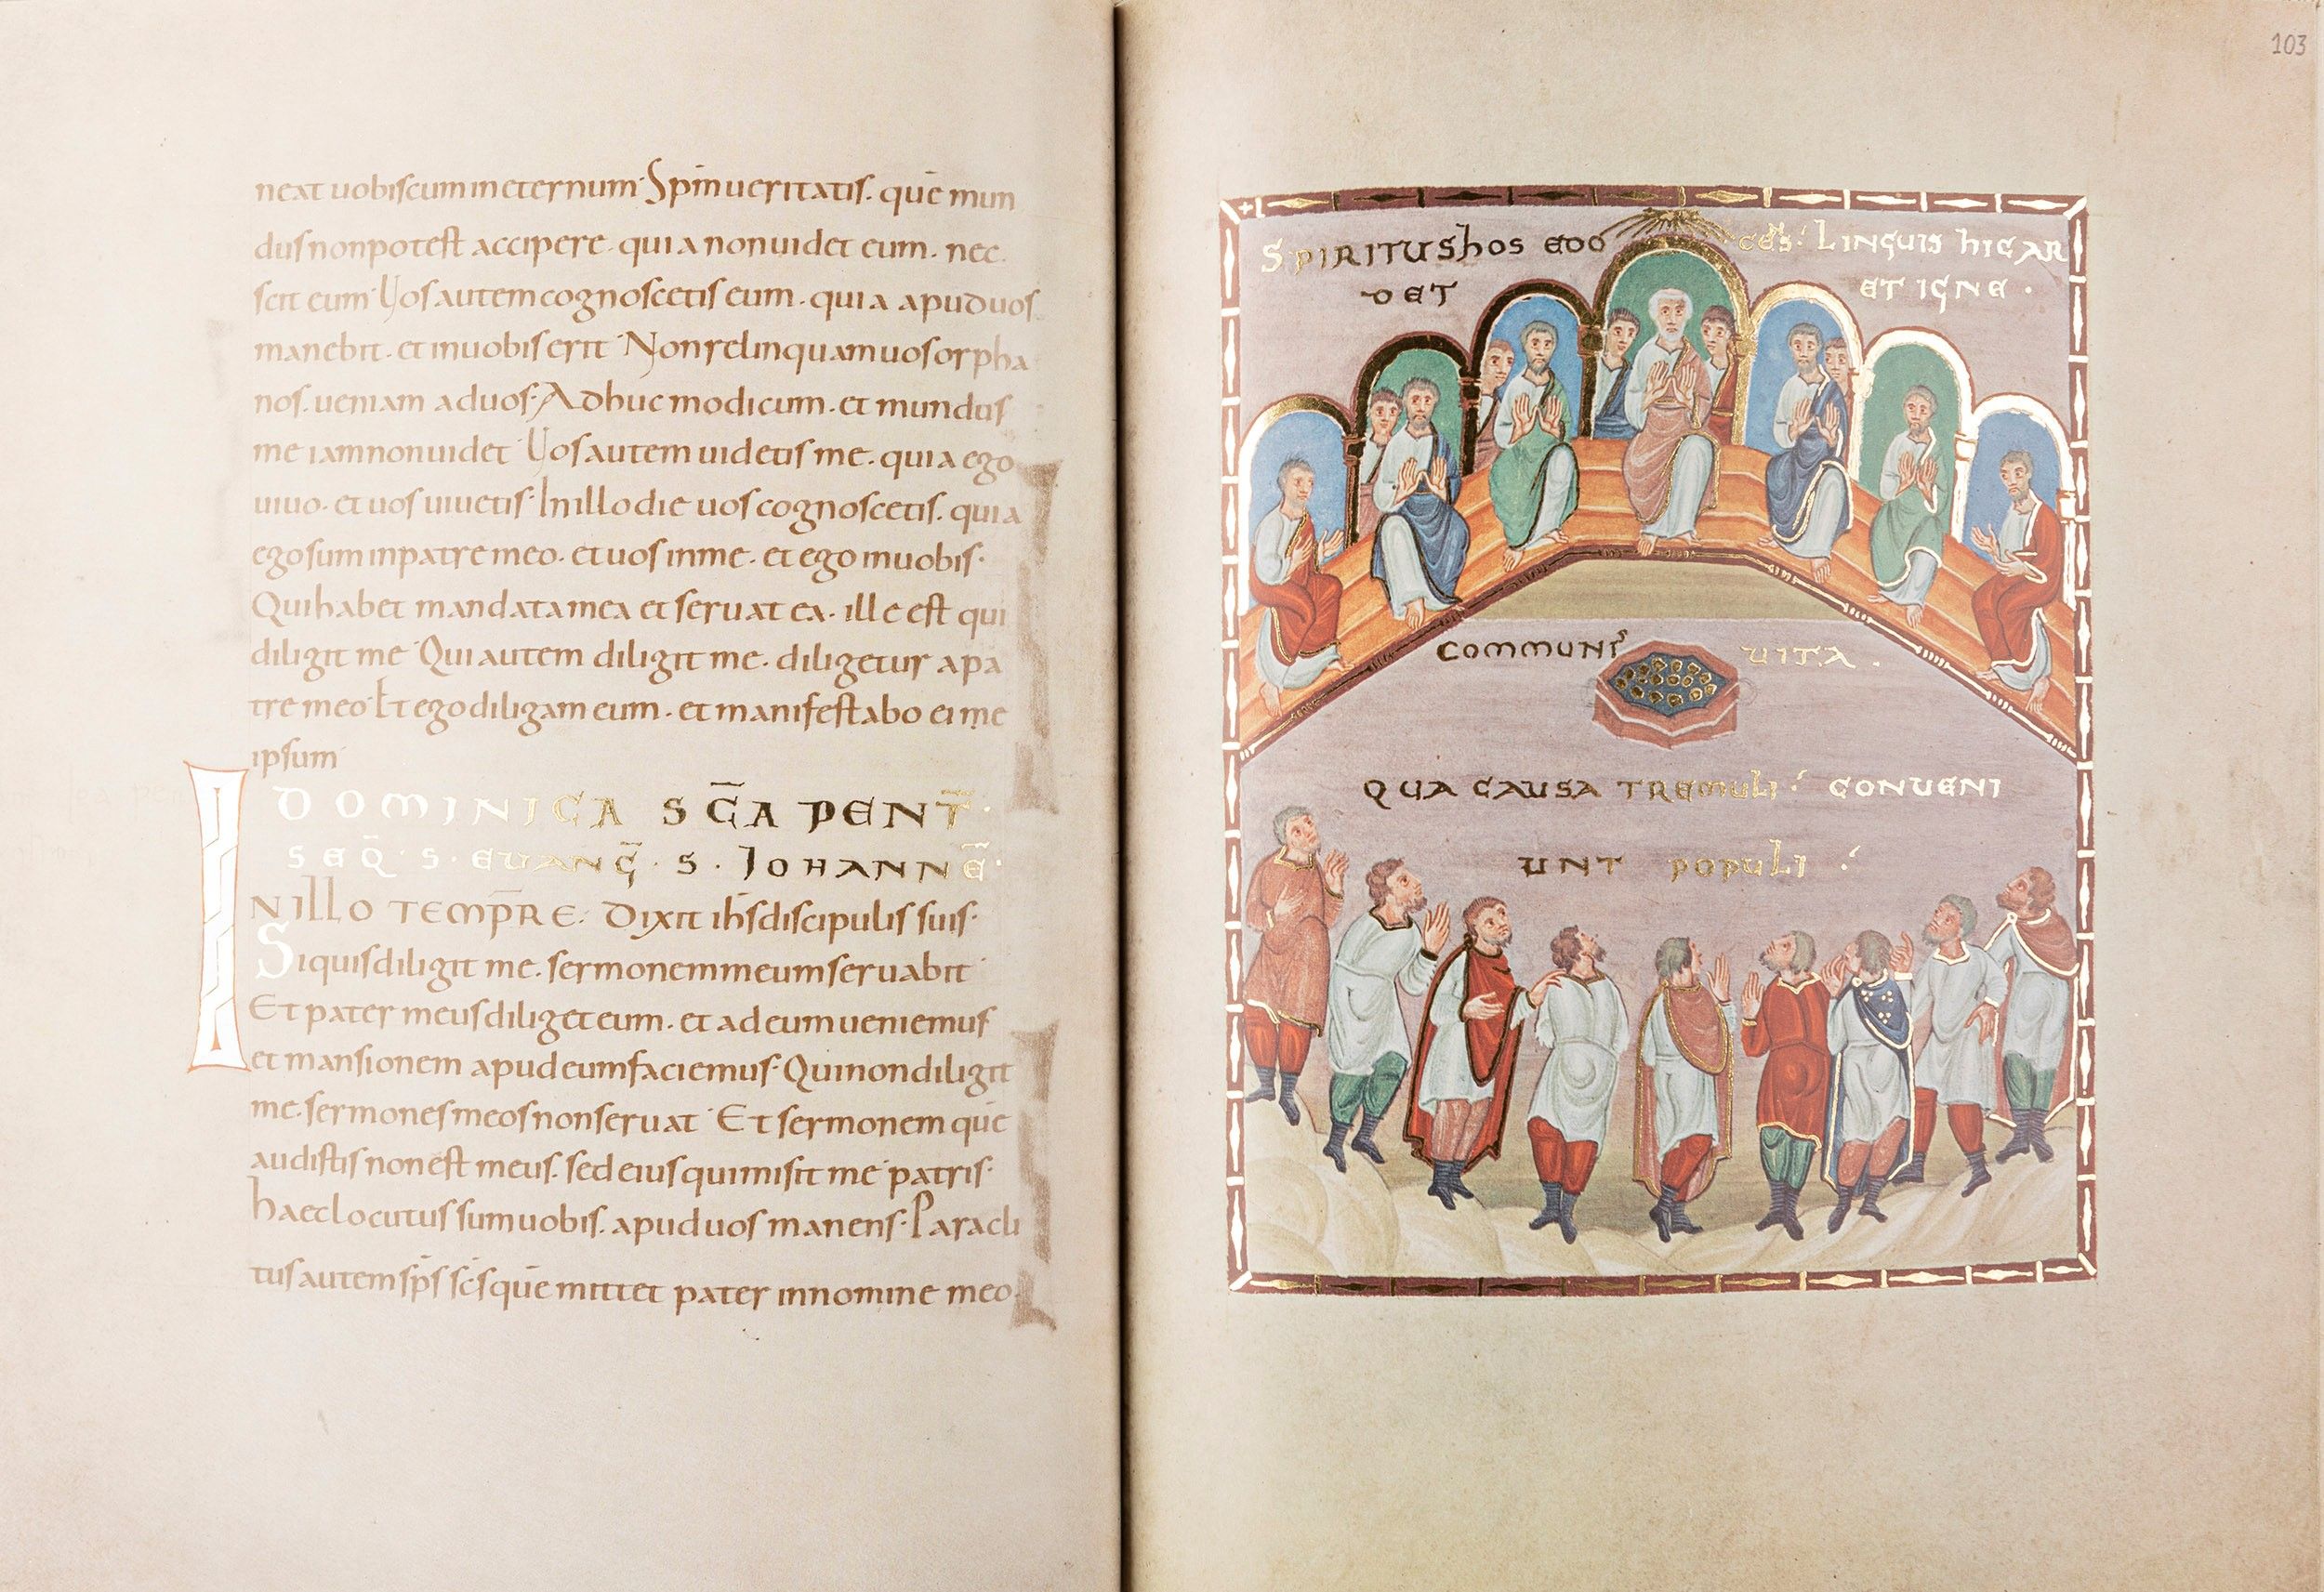 neat uobiscum in eternum· Sp̄m ueritatis. quē mun
dus non potest accipere. quia non uidet eum. nec
scit eum· Uos autem cognoscetis eum. quia apud uos
manebit. et in uobis erit· Non relinquam uos orpha
nos. ueniam ad uos· Adhuc modicum. et mundus
me iam non uidet· Uos autem uidetis me. quia ego
uiuo. et uos uiuetis· In illo die uos cognoscetis. quia
ego sum in patre meo. et uos in me. et ego in uobis·
Qui habet mandata mea et seruat ea. ille est qui
diligit me· Qui autem diligit me. diligetur a pa
tre meo· Et ego diligam eum. et manifestabo ei me
ipsum
DOMINICA SC̄A PENT̄·
SEQ̄· S· EUANḠ· S· IOHANNĒ·
IN ILLO TEMP̄RE· Dixit ih̄s discipulis suis·
Si quis diligit me. sermonem meum seruabit·
Et pater meus diliget eum. et ad eum ueniemus
et mansionem apud eum faciemus· Qui non diligit
me. sermones meos non seruat· Et sermonem quē
audistis non est meus. sed eius qui misit me patris·
haec locutus sum uobis. apud uos manens· Paracli
tus autem sp̄s sc̄s quē mittet pater in nomine meo
103
SPIRITUS hOS EDO CE͂S· LINGUIS hIC AR
DET ET IGNE·
COMMUNIˢ UITA·
QUA CAUSA TREMULI· CONUENI
UNT POPULI·